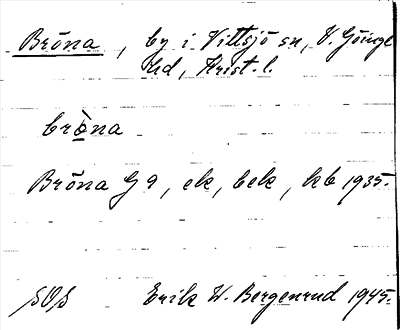 Bröna, by i Vittsjö sn, V. Göinge
hd, Krist. l.
bròna
Bröna G 9, ek, bek, kb 1935.
SOS Erik W. Bergenrud 1945.